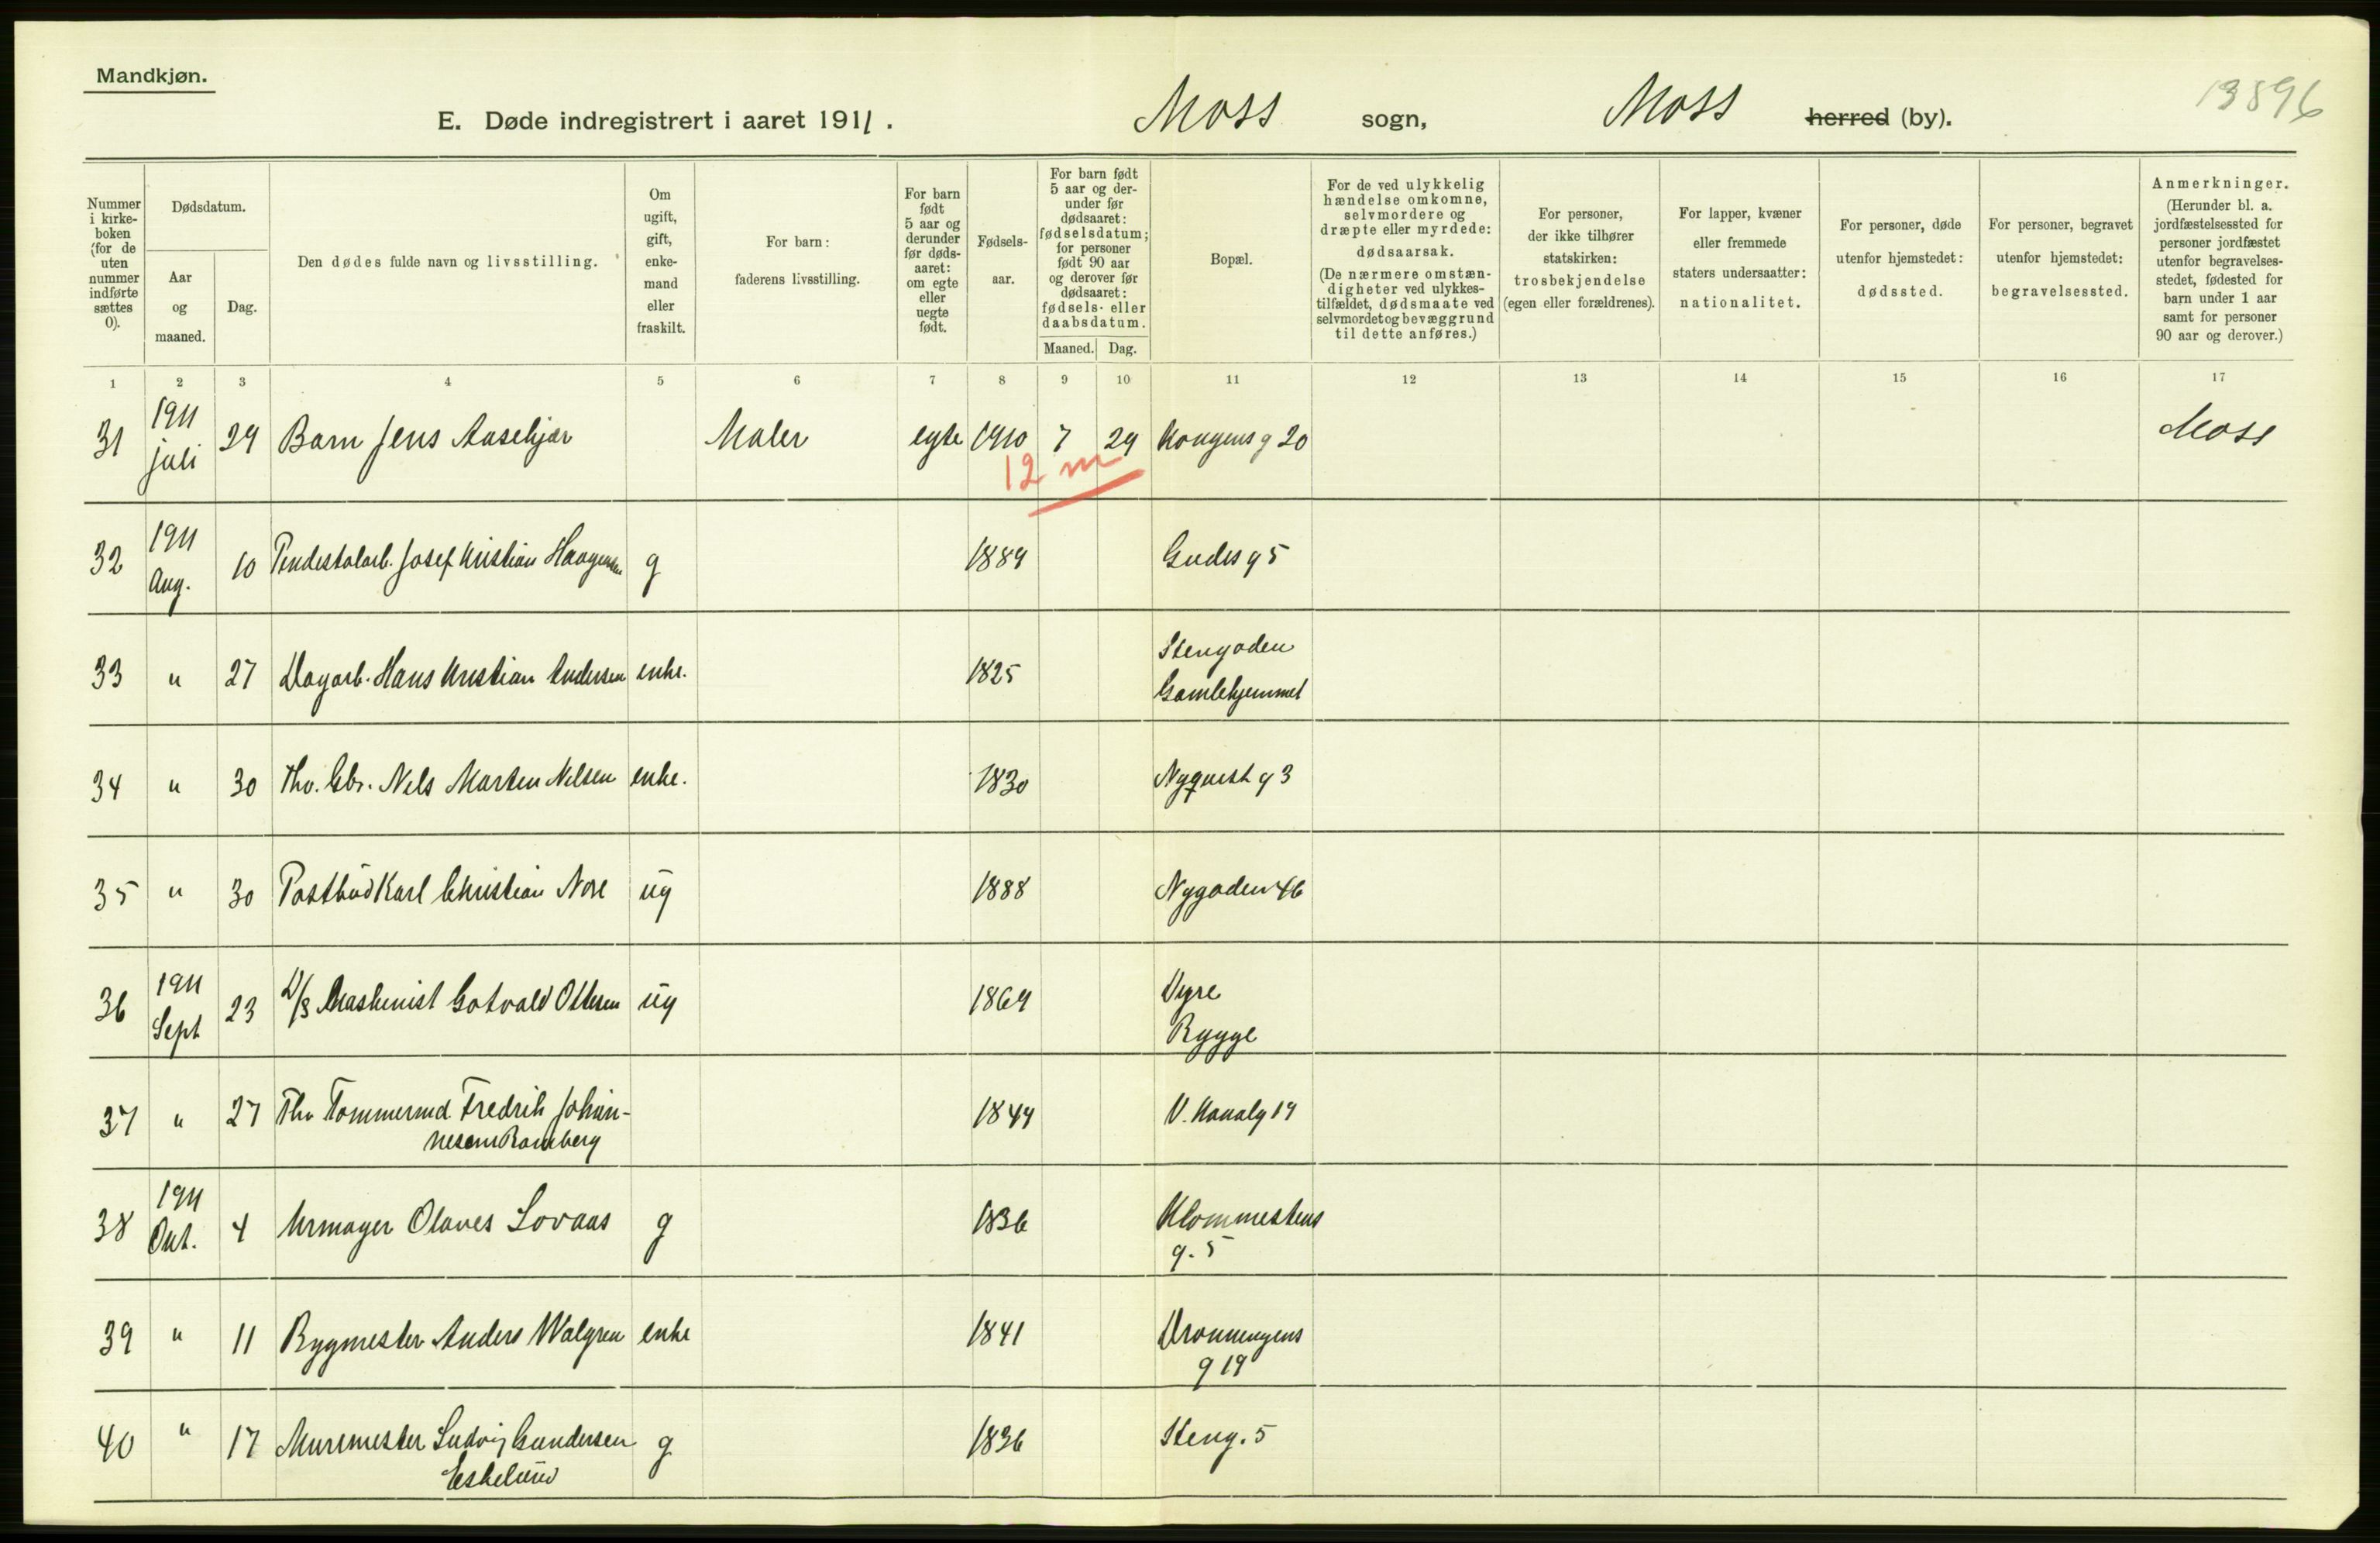 Mandkjøn.
E. Døde indregistrert i aaret 1911.
Moss sogn,
Moss herred (by).
13896
Nummer i kirke-boken (for de uten nummer indførte sættes 0).
Dødsdatum.
Aar og maaned.
Dag.
Den dødes fulde navn og livsstilling.
Om ugift, gift, enke-mand eller fraskilt.
For barn: faderens livsstilling.
For barn født 5 aar og derunder før døds-aaret: om egte eller uegte født.
Fødsels-aar.
For barn født 5 aar og der-under før dødsaaret: fødselsdatum; for personer født 90 aar og derover før dødsaaret: fødsels- eller daabsdatum.
Maaned. Dag.
Bopæl.
For de ved ulykkelig hændelse omkomne, selvmordere og dræpte eller myrdede: dødsaarsak. (De nærmere omstæn-digheter ved ulykkes-tilfældet, dødsmaate ved selvmordet og bevæggrund til dette anføres.)
For personer, der ikke tilhører statskirken: trosbekjendelse (egen eller forældrenes).
For lapper, kvæner eller fremmede staters undersaatter: nationalitet.
For personer, døde utenfor hjemstedet: dødssted.
For personer, begravet utenfor hjemstedet: begravelsessted.
Anmerkninger. (Herunder bl. a. jordfæstelsessted for personer jordfæstet utenfor begravelses-stedet, fødested for barn under 1 aar samt for personer 90 aar og derover.)
1 2 3 4 5 6 7 8 9 10 11 12 13 14 15 16 17
31 1911 juli 29 Barn Jens Aasekjær Maler egte 1910 7 29 Kongens g 20 Moss
12 m
32 1911 Aug. 10 Josef Kristian Haagensen g 1889 Gudes g 5
33 " 27 Dagarb. Hans Kristian Andersen enke. 1825 Stengaden
Gamlehjemmet
34 " 30 Fhv. Nels Marten Nelsen enke. 1830 Nyquist g 3
35 " 30 Postbud Karl Christian Nore ug 1888 Nygaden 46
36 1911 Sept 23 D/S Maskinist Gotvald Ottesen ug 1869 Dyre
Rygge
37 " 27 Fhv Tømmermd. Fredrik Johan-
nesen Ramberg 1849 V. Kanalg 19
38 1911 Okt. 4 Urmager Olaves Lovaas g 1836 Klommestens
g. 5
39 " 11 Bygmester Anders Walgren enke 1841 Dronningens
g 19
40 " 17 Murermester Ludvig Gundersen g 1836 Steng. 5
Eskelund